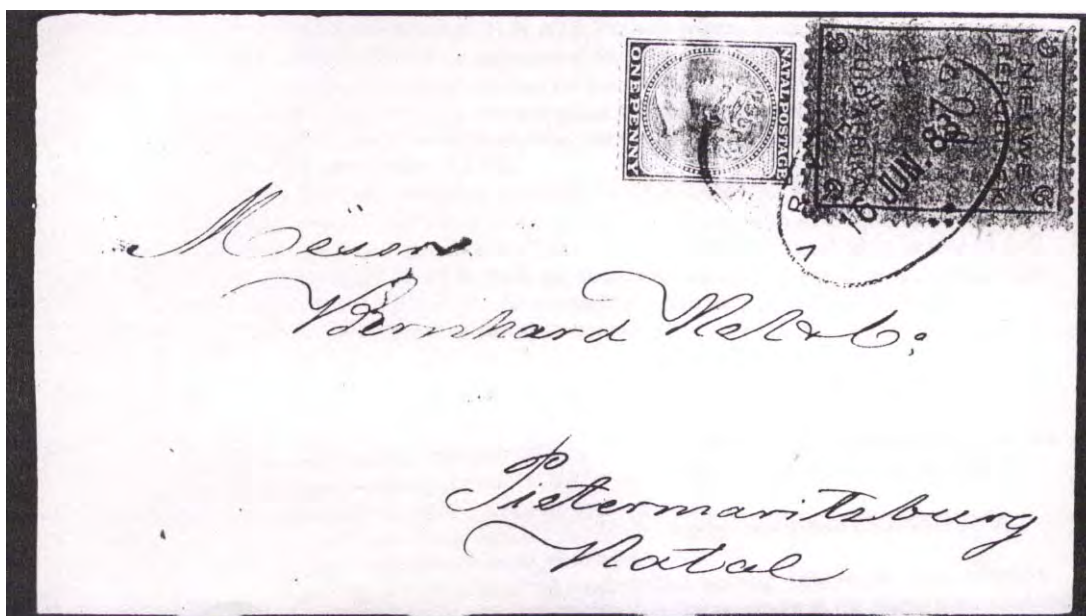 NATAL POSTAGE
ONE PENNY
NIEUWE
REPUBLIEK
ZUID AFRIKA
16 JUN.
Messrs
Bernhard & Co:
Pietermaritzburg
Natal